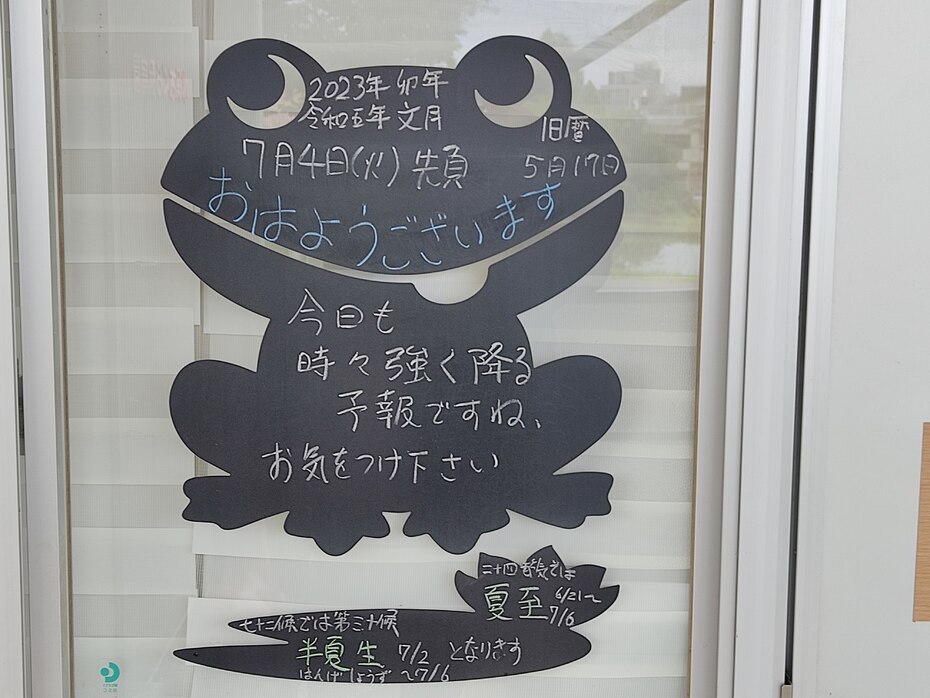 2023年 卯年
令和五年 文月
7月4日(火) 先負
旧暦
5月17日
おはようございます
今日も
時々強く降る
予報ですね、
お気をつけ下さい
二十四節気では
夏至 6/21〜
7/6
七十二候では第三十候
半夏生 7/2 となります
はんげしょうず 〜7/6